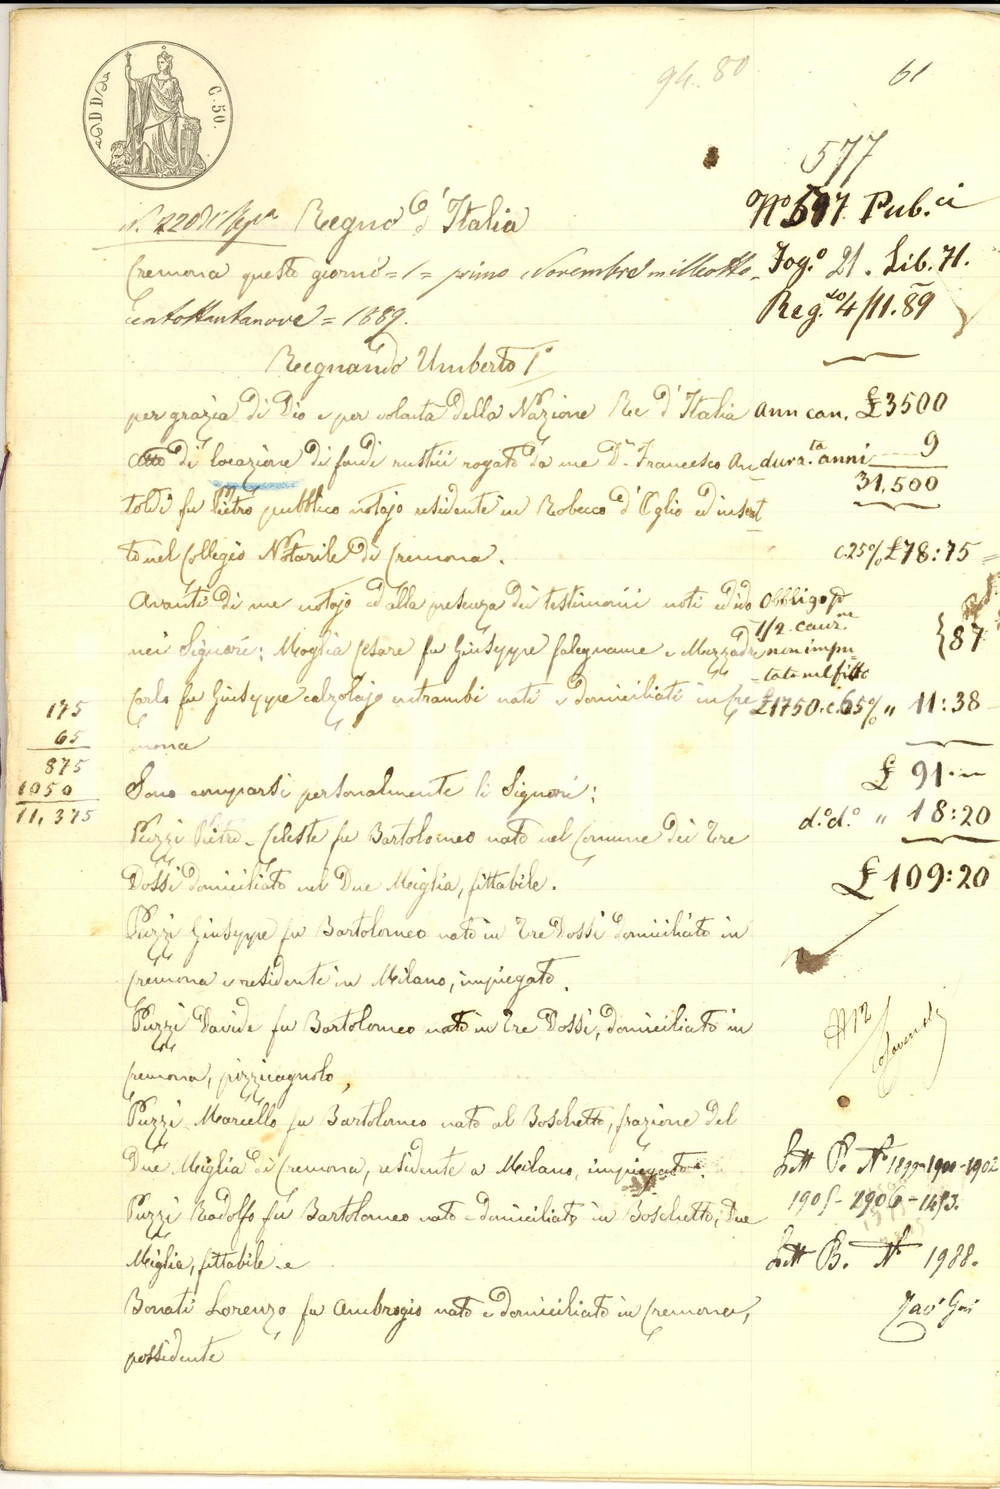 94.80
61
C. 50.
577
N° 507. Pub.ci
N. 220 di Rep.a Regno d'Italia
Fog.° 21. Lib. 71.
Cremona questo giorno = 1 = primo Novembre milleotto
Reg.to 4/11.89
centottantanove = 1889.
Regnando Umberto I°
per grazia di Dio e per volontà della Nazione Re d'Italia
Ann can. £ 3500
Atto di locazione di fondi rustici rogato da me Dr. Francesco An
durr.ta anni 9
31,500
toldi fu Pietro pubblico notajo residente in Robecco d'Oglio ed inscrit
to nel Collegio Notarile di Cremona.
c.25% £ 78:75
Avanti di me notajo ed alla presenza dei testimonii noti ed ido
Obbligo p
1/2 cauz.ne
nei Signori: Moglia Cesare fu Giuseppe falegname e Mezzadri
non impu
tata nel fitto
{ 87
Carlo fu Giuseppe calzolajo entrambi nati e domiciliati in Cre
£1750.c.65% " 11:38
mona
175
65
875
1050
11,375
£ 91.—
Sono comparsi personalmente li Signori:
d.° d.° " 18:20
Puzzi Pietro-Celeste fu Bartolomeo nato nel Comune dei Tre
£ 109:20
Dossi domiciliato nel Due Miglia, fittabile.
Puzzi Giuseppe fu Bartolomeo nato in Tre Dossi domiciliato in
Cremona e residente in Milano, impiegato.
Puzzi Davide fu Bartolomeo nato in Tre Dossi, domiciliato in
Cremona, pizzicagnolo,
Puzzi Marcello fu Bartolomeo nato al Boschetto, frazione del
Due Miglia di Cremona, residente a Milano, impiegato.
Lett P. N° 1899-1900-1902
Puzzi Rodolfo fu Bartolomeo nato e domiciliato in Boschetto, Due
1905-2906-1453.
Miglia, fittabile e
Lett B. N° 1988.
Bonati Lorenzo fu Ambrogio nato e domiciliato in Cremona,
possidente